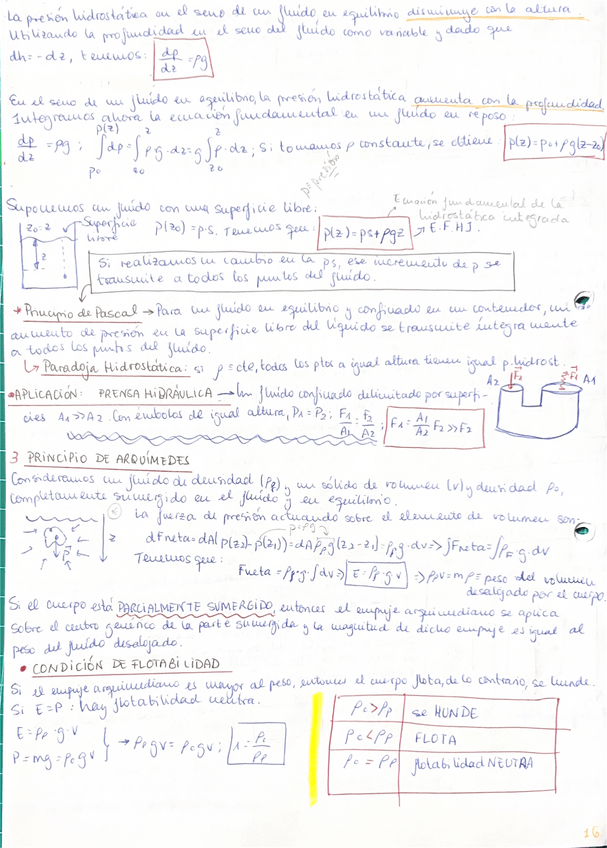 La presión hidrostática en el seno de un fluido en equilibrio disminuye con la altura.
Utilizando la profundidad en el seno del fluido como variable y dado que
dh = -dz, tenemos: dp/dz = ρg
En el seno de un fluido en equilibrio, la presión hidrostática aumenta con la profundidad
Integramos ahora la ecuación fundamental en un fluido en reposo:
dp/dz = ρg ; ∫dp = ∫ρ·g·dz = g∫ρ·dz ; Si tomamos ρ constante, se obtiene p(z) = p0 + ρg(z-z0)
Suponemos un fluido con una superficie libre:
z0=z Superficie libre p(z0) = p.s. Tenemos que: p(z) = ps + ρgz → E.F.H.I.
Ecuación fundamental de la
hidrostática integrada
Si realizamos un cambio en la ps, ese incremento de p se
transmite a todos los puntos del fluido.
→ Principio de Pascal → Para un fluido en equilibrio y confinado en un contenedor, un
aumento de presión en la superficie libre del líquido se transmite íntegramente
a todos los puntos del fluido.
↳ Paradoja Hidrostática: si ρ = cte, todos los ptos a igual altura tienen igual p. hidrost.
• APLICACIÓN: PRENSA HIDRÁULICA → Un fluido confinado delimitado por superfi-
cies A1 >> A2. Con émbolos de igual altura, P1 = P2 ; F1/A1 = F2/A2 ; F1 = A1/A2 F2 >> F2
A2 F2 F1 A1
3 PRINCIPIO DE ARQUÍMEDES
Consideramos un fluido de densidad (ρf) y un sólido de volumen (v) y densidad ρc,
completamente sumergido en el fluido y en equilibrio.
La fuerza de presión actuando sobre el elemento de volumen son:
dFneta = dA(p(z2) - p(z1)) = dAρfg(z2-z1) = ρfg·dv ⇒ ∫dFneta = ∫ρf·g·dv
Tenemos que:
Fneta = ρf·g·∫dv ⇒ E = ρf·g·v ⇒ ρfv = mf = peso del volumen
desalojado por el cuerpo.
Si el cuerpo está PARCIALMENTE SUMERGIDO, entonces el empuje arquimediano se aplica
sobre el centro de la parte sumergida y la magnitud de dicho empuje es igual al
peso del fluido desalojado.
• CONDICIÓN DE FLOTABILIDAD
Si el empuje arquimediano es mayor al peso, entonces el cuerpo flota, de lo contrario, se hunde.
Si E = P : hay flotabilidad neutra.
E = ρf·g·v
P = mg = ρcgv
→ ρfgv = ρcgv ; 1 = ρc/ρf
ρc > ρf se HUNDE
ρc < ρf FLOTA
ρc = ρf flotabilidad NEUTRA
16